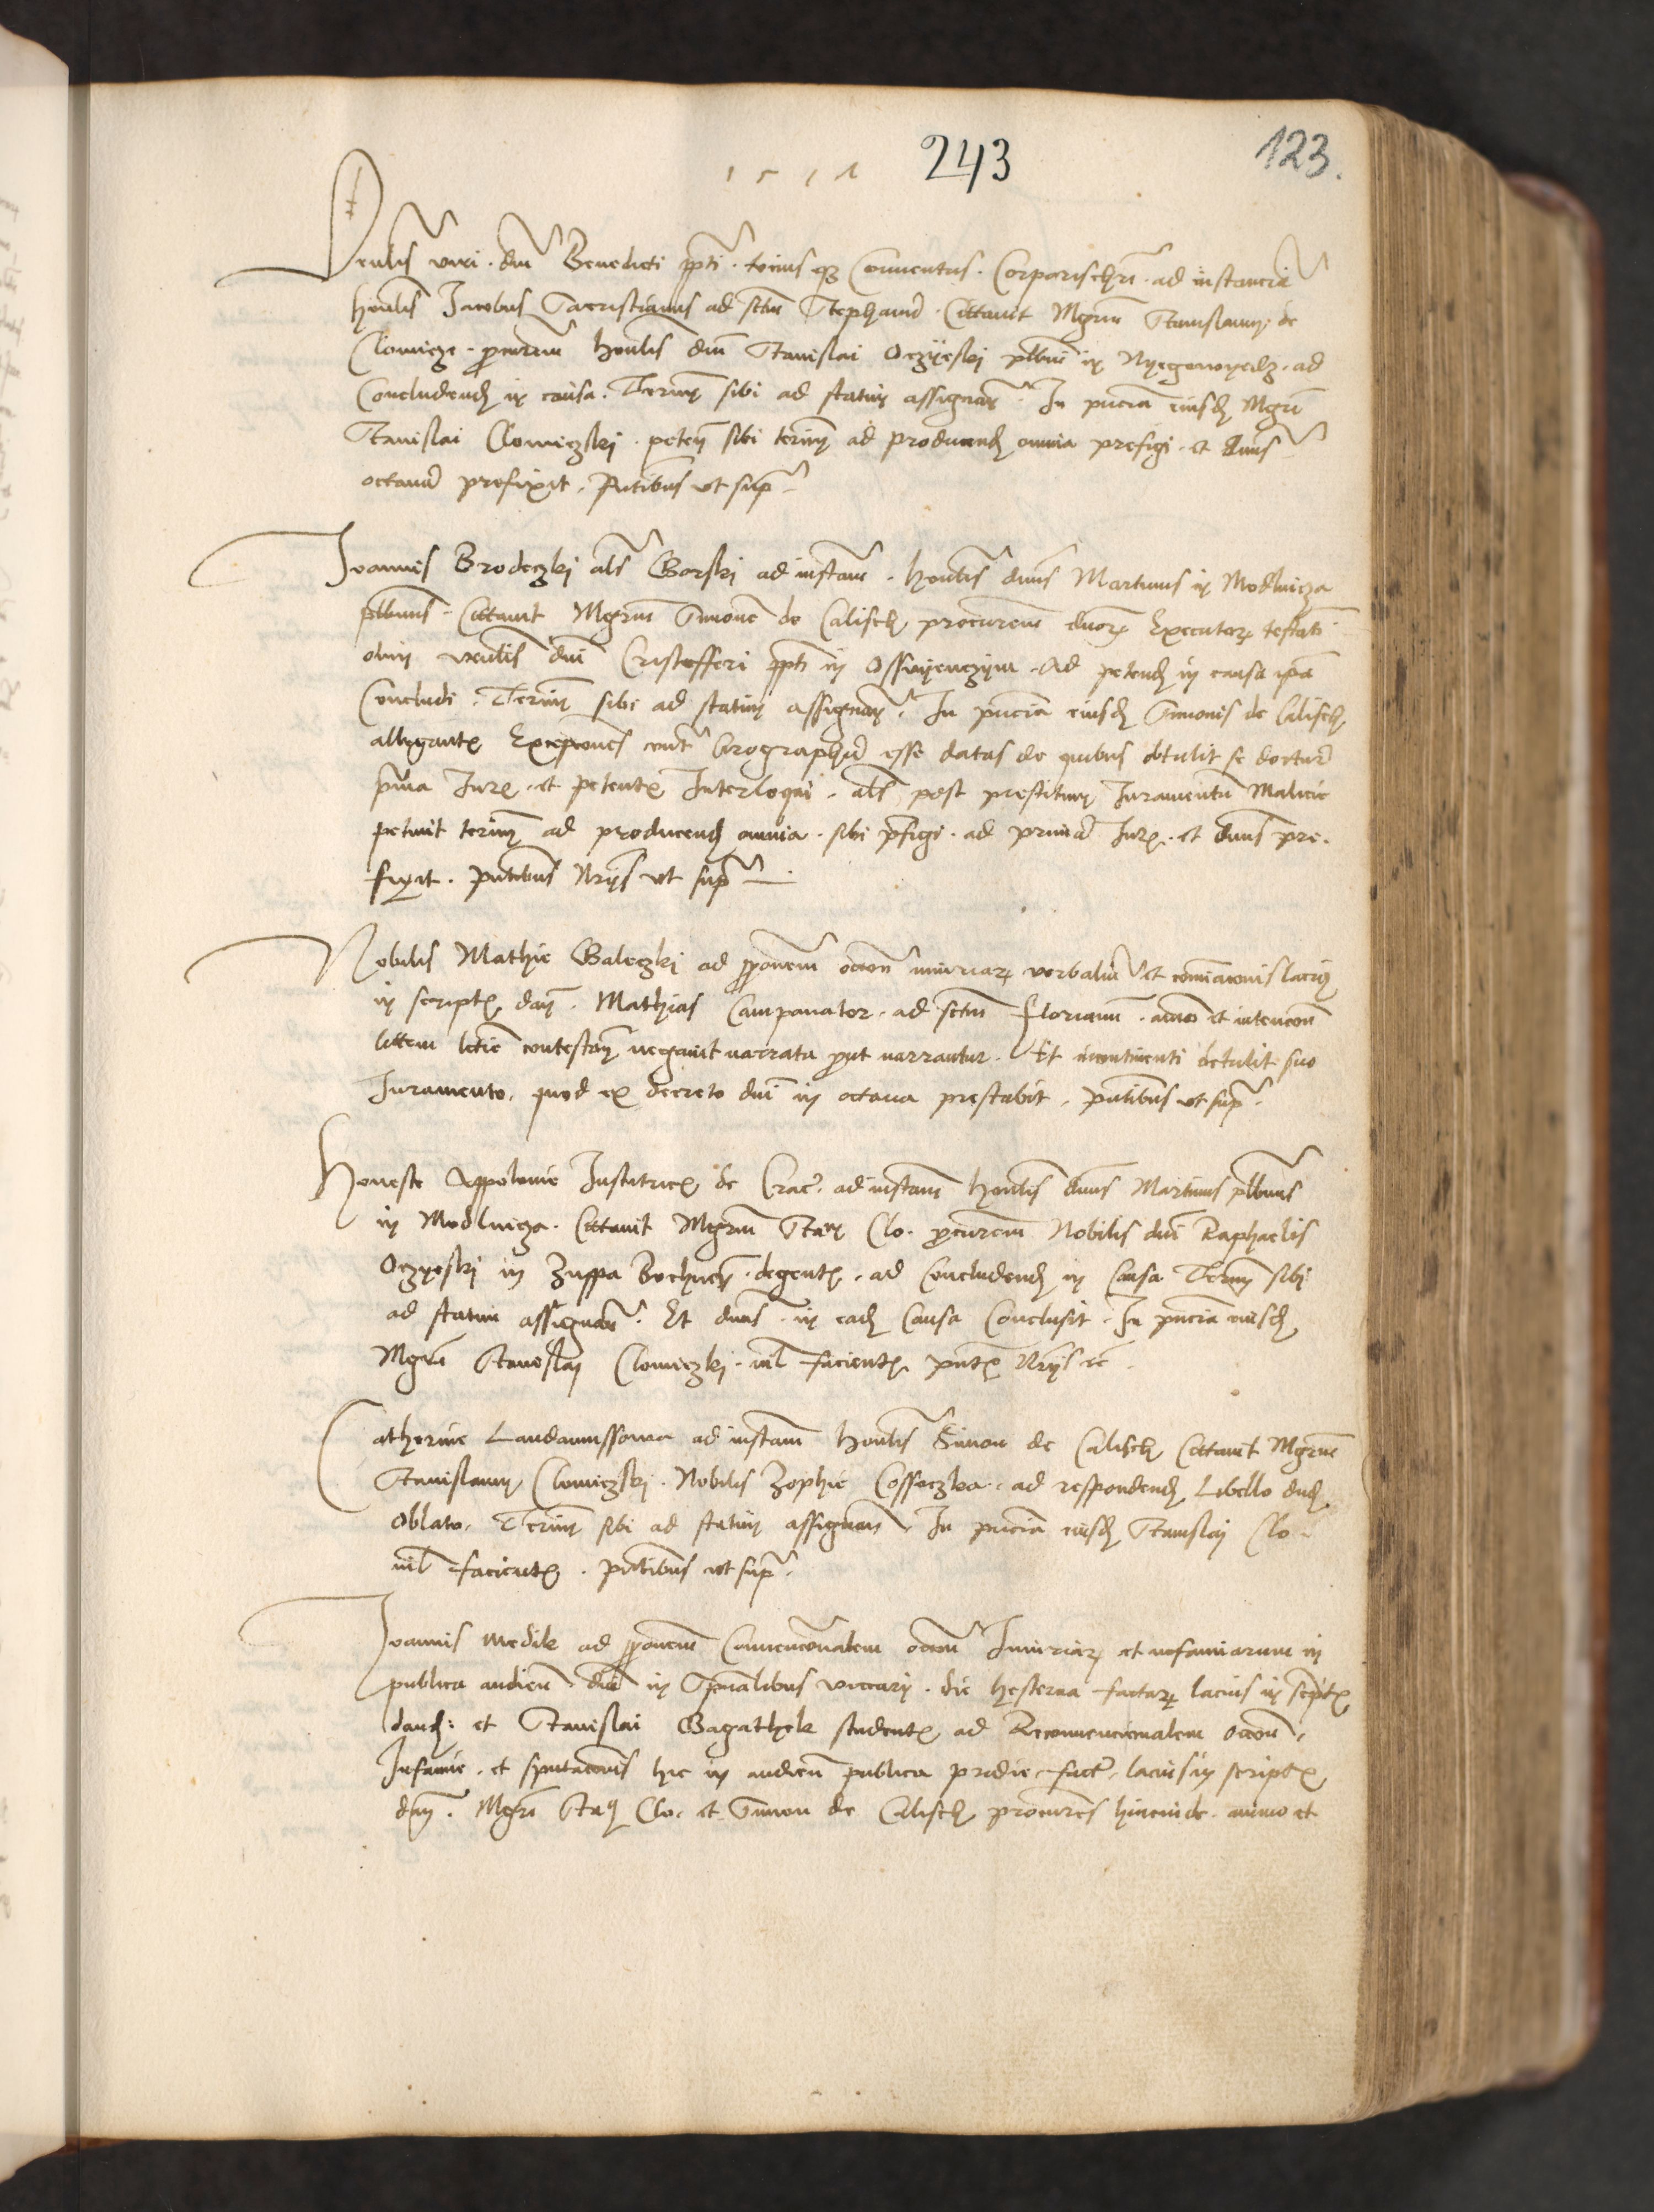 1 5 1 1 243 123.
Venlis viri dni Benedicti ppti tocius qz Conventus Corporischri ad instancia
honlis Jacobus Sacristianus ad sctm Stephanu Cittavit Mgrum Stanislaum de
Clomicze procurem honlis dni Stanislai Oczyeski plbni in Nyegowyedz ad
Concludend in causa Termin sibi ad statim assignan In pncia eiusd Mgri
Stanislai Clomiczski peten sibi termin ad producend omnia prefigi et dnus
octava prefixit Pntibus ut sup
Joannis Brodeczki als Gorski ad instam honlis dnus Martinus in Modlnicza
plbnus Cittavit Mgrum Simone de Calisch procurem dnor Executor testati
olim venlis dni Cristofferi ppti in Osswyenczym Ad petend in causa ipa
Concludi Termin sibi ad statim assignan In pncia eiusd Simonis de Calisch
allegante Excepciones contra Cirographu esse datas de quibus obtulit se docturu
prima Jur et petente Interloqui als post prestitum Juramentu Malicie
petivit termin ad producend omnia sibi pfigi ad prima Jur et dnus pre
fixit pntibus Nrys ut sup
Nobilis Mathie Galeczki ad pponem accon iniuriar verbaliu et comiacionis lacius
in script dan Mathias Campanator ad sctm Florianu animo et intencon
littem lctie contestan negavit narrata prout narrantur Et incontinenti detulit suo
Juramento quod ex decreto dni in octava prestabit pntibus ut sup
Honeste Appolonie Institrice de Crac ad instam honlis dnus Martinus plbnus
in Modlnicza Cittavit Mgrum Stan Clo procurem Nobilis dni Raphaelis
Oczyeski in Zuppa Bochnen degente ad Concludend in Causa Termin sibi
ad statim assignan Et dnus in ead Causa Conclusit In pncia eiusd
Mgri Stanislai Clomiczki nil faciente pnte Nrys etc
Catherine Landamussowa ad instam honlis Simon de Calisch Cittavit Mgrum
Stanislaum Clomiczski Nobilis Zophie Cossoczka ad respondend Libello dud
oblato Termin sibi ad statim assignan In pncia eiusd Stanislai Clo
nil faciente pntibus ut sup
Joannis Medik ad pponem Convencionalem accon Iniuriar et infamiarum in
publica audien dni in Spualibus vicarii die hesterna factar lacius in script
dand et Stanislai Gagathek studente ad Reconvencionalem accon
Infamie et sputacionis hic in audien publica pridie fact lacius in script
dan Mgri Stan Clo et Simon de Calisch procures hincinde animo et